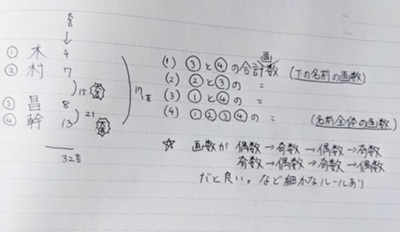 画数
↓
① 木 4
② 村 7
)15吉
③ 昌 8
)21吉
④ 幹 13
)17吉
32吉
(1) ③と④の合計画数 (下の名前の画数)
(2) ②と③の 〃
(3) ①と④の 〃
(4) ①②③④の 〃 (名前全体の画数)
☆ 画数が 偶数→奇数→偶数→奇数
奇数→偶数→奇数→偶数
だと良い。など細かなルールあり